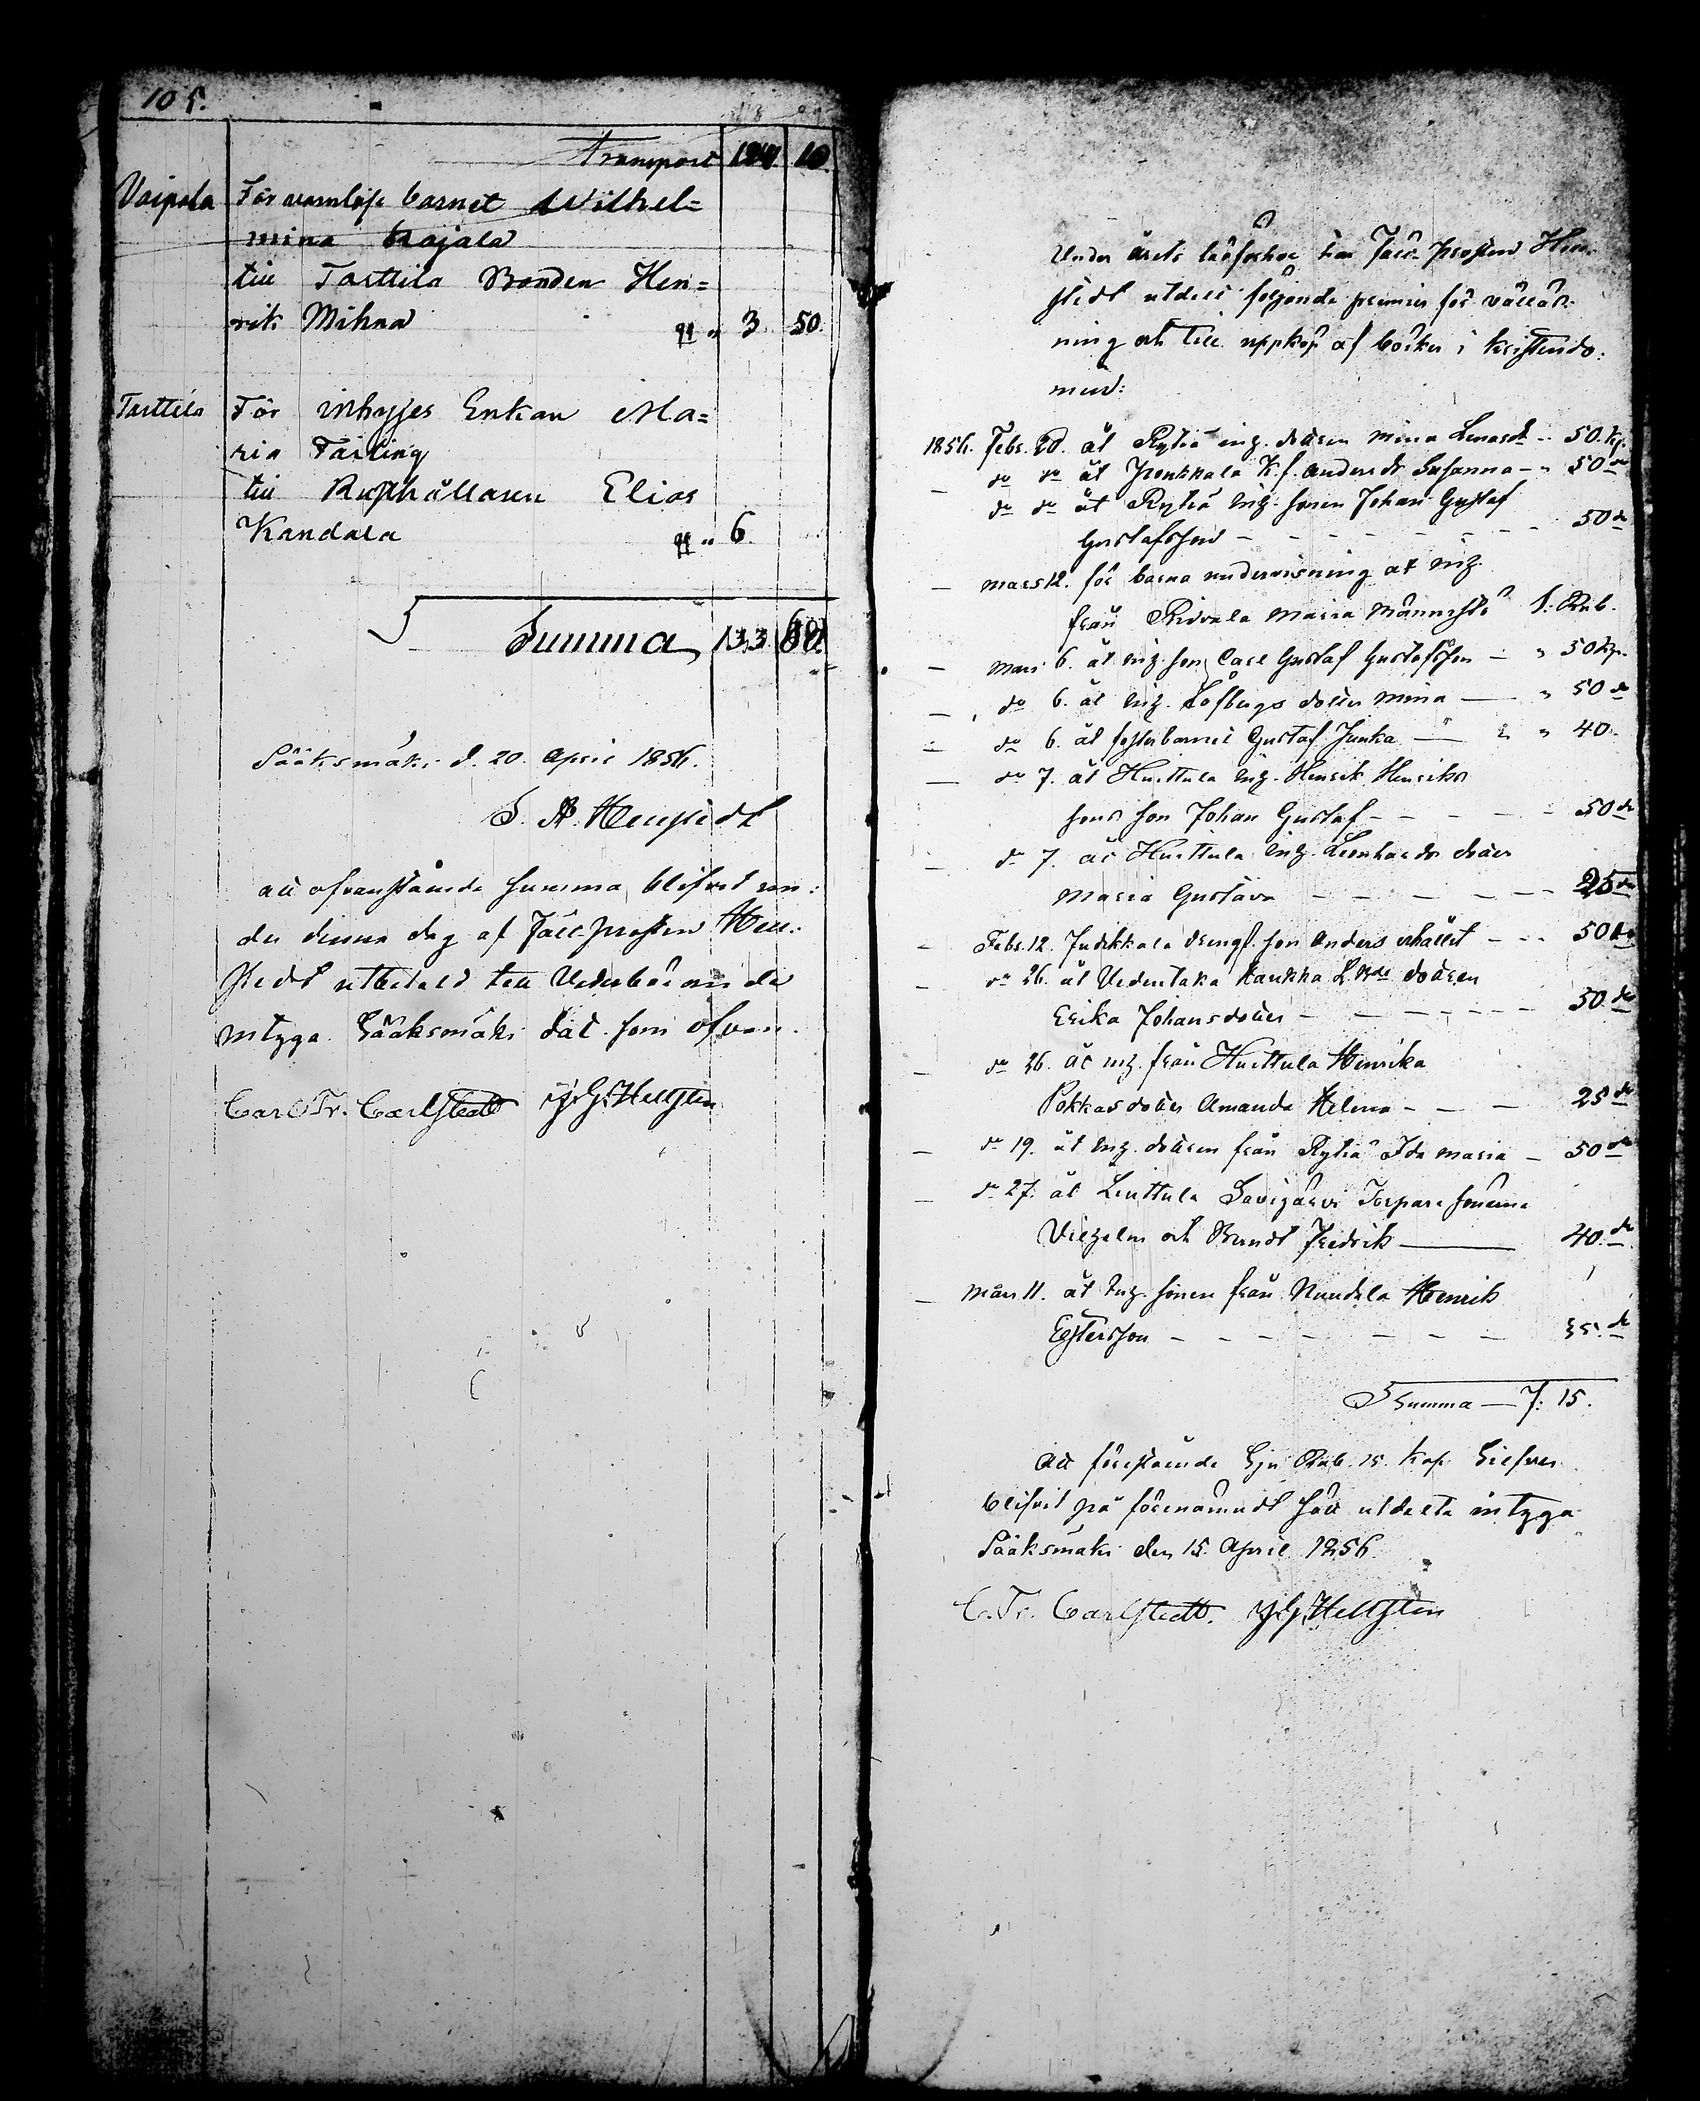 105.
Transport 124. 10.
Voipala För wärnlösa barnet Wilhel=
mina Kajala
till Tarttila Bonden Hen=
rik Mihna 3. 50.
Tarttila För inhyses Enkan Ma=
ria Färling
till Rusthållaren Elias
Kandala 6.
Summa 133 60.
Sääksmäki d. 20. April 1856.
att ofvanstående summa blifvit un:
der denna dag af Fält Prosten Hen:
stedt utbetald till Vederbörande
intyga Sääksmäki dat. som ofvan.
Carl Fr. Carlstedt G. Hellsten
Under årets läsförhör har Fält Prosten Hen:
stedt utdelt följande premier för välläs:
ning och till uppköp af böcker i kristendo:
men:
1856. Febr. 20. åt Rytiä inh. dottren Mina Lenardt 50. kp.
— do do åt K.f. Anders dr Susanna — 50 do
do do åt Rytiä inh. sonen Johan Gustaf
Gustafsson — — — 50 do
— Mars 12. för barna undervisning åt inh.
från Ridvala Maria Männistö 1. Rub.
— Mars 6. åt inh. son Carl Gustaf Gustafsson — 50 kp.
— do 6. åt inh. Löfbergs dotter Mina — 50 do
— do 6. åt fosterbarnet Gustaf Junka — 40.
— do 7. åt Huittula inh. Henrik Henriks
sons son Johan Gustaf — — 50 do
— do 7. åt Huittula inh. Leonhards dotter
Maria Gustava — — — 25 do
— Febr. 12. Judikkala drengs. son Anders — 50 do
— do 26. åt Uedentaka Kaukka dottren
Erika Johansdotter — — — 50. do
— do 26. åt inh. från Huittula Henrika
Pokkas dotter Amanda Helena — — 25 do
— do 19. åt inh. dottren från Rytiä Ida Maria — 50 do
— do 27. åt Liuttula Savijärvi Torpare sönerna
Vilhelm och Berndt Fredrik — 40. do
— Mars 11. åt inh. sonen från Henrik
Estersson — — — 35. do
Summa — 7: 15.
Att förestående Sju Rub. 15. Kop. Silfver
blifvit på förenämndt sätt utdelta intyga
Sääksmäki den 15. April 1856.
C. Fr. Carlstedt. G. Hellsten